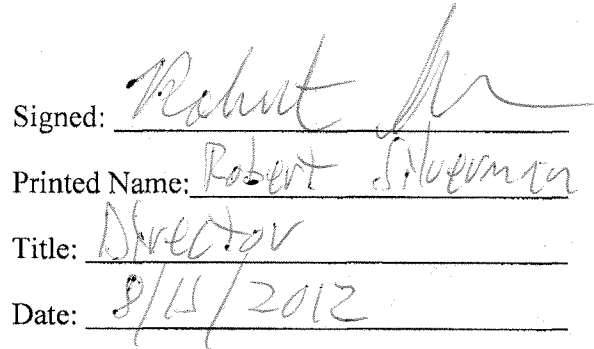 Signed: Robert
Printed Name: Robert Silverman
Title: Director
Date: 8/15/2012